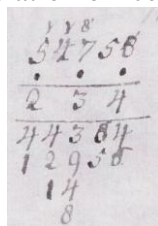 1 1 8
5 4 7 5 6
. . .
2 3 4
4 4 3 8 4
1 2 9 5 6
1 4
8